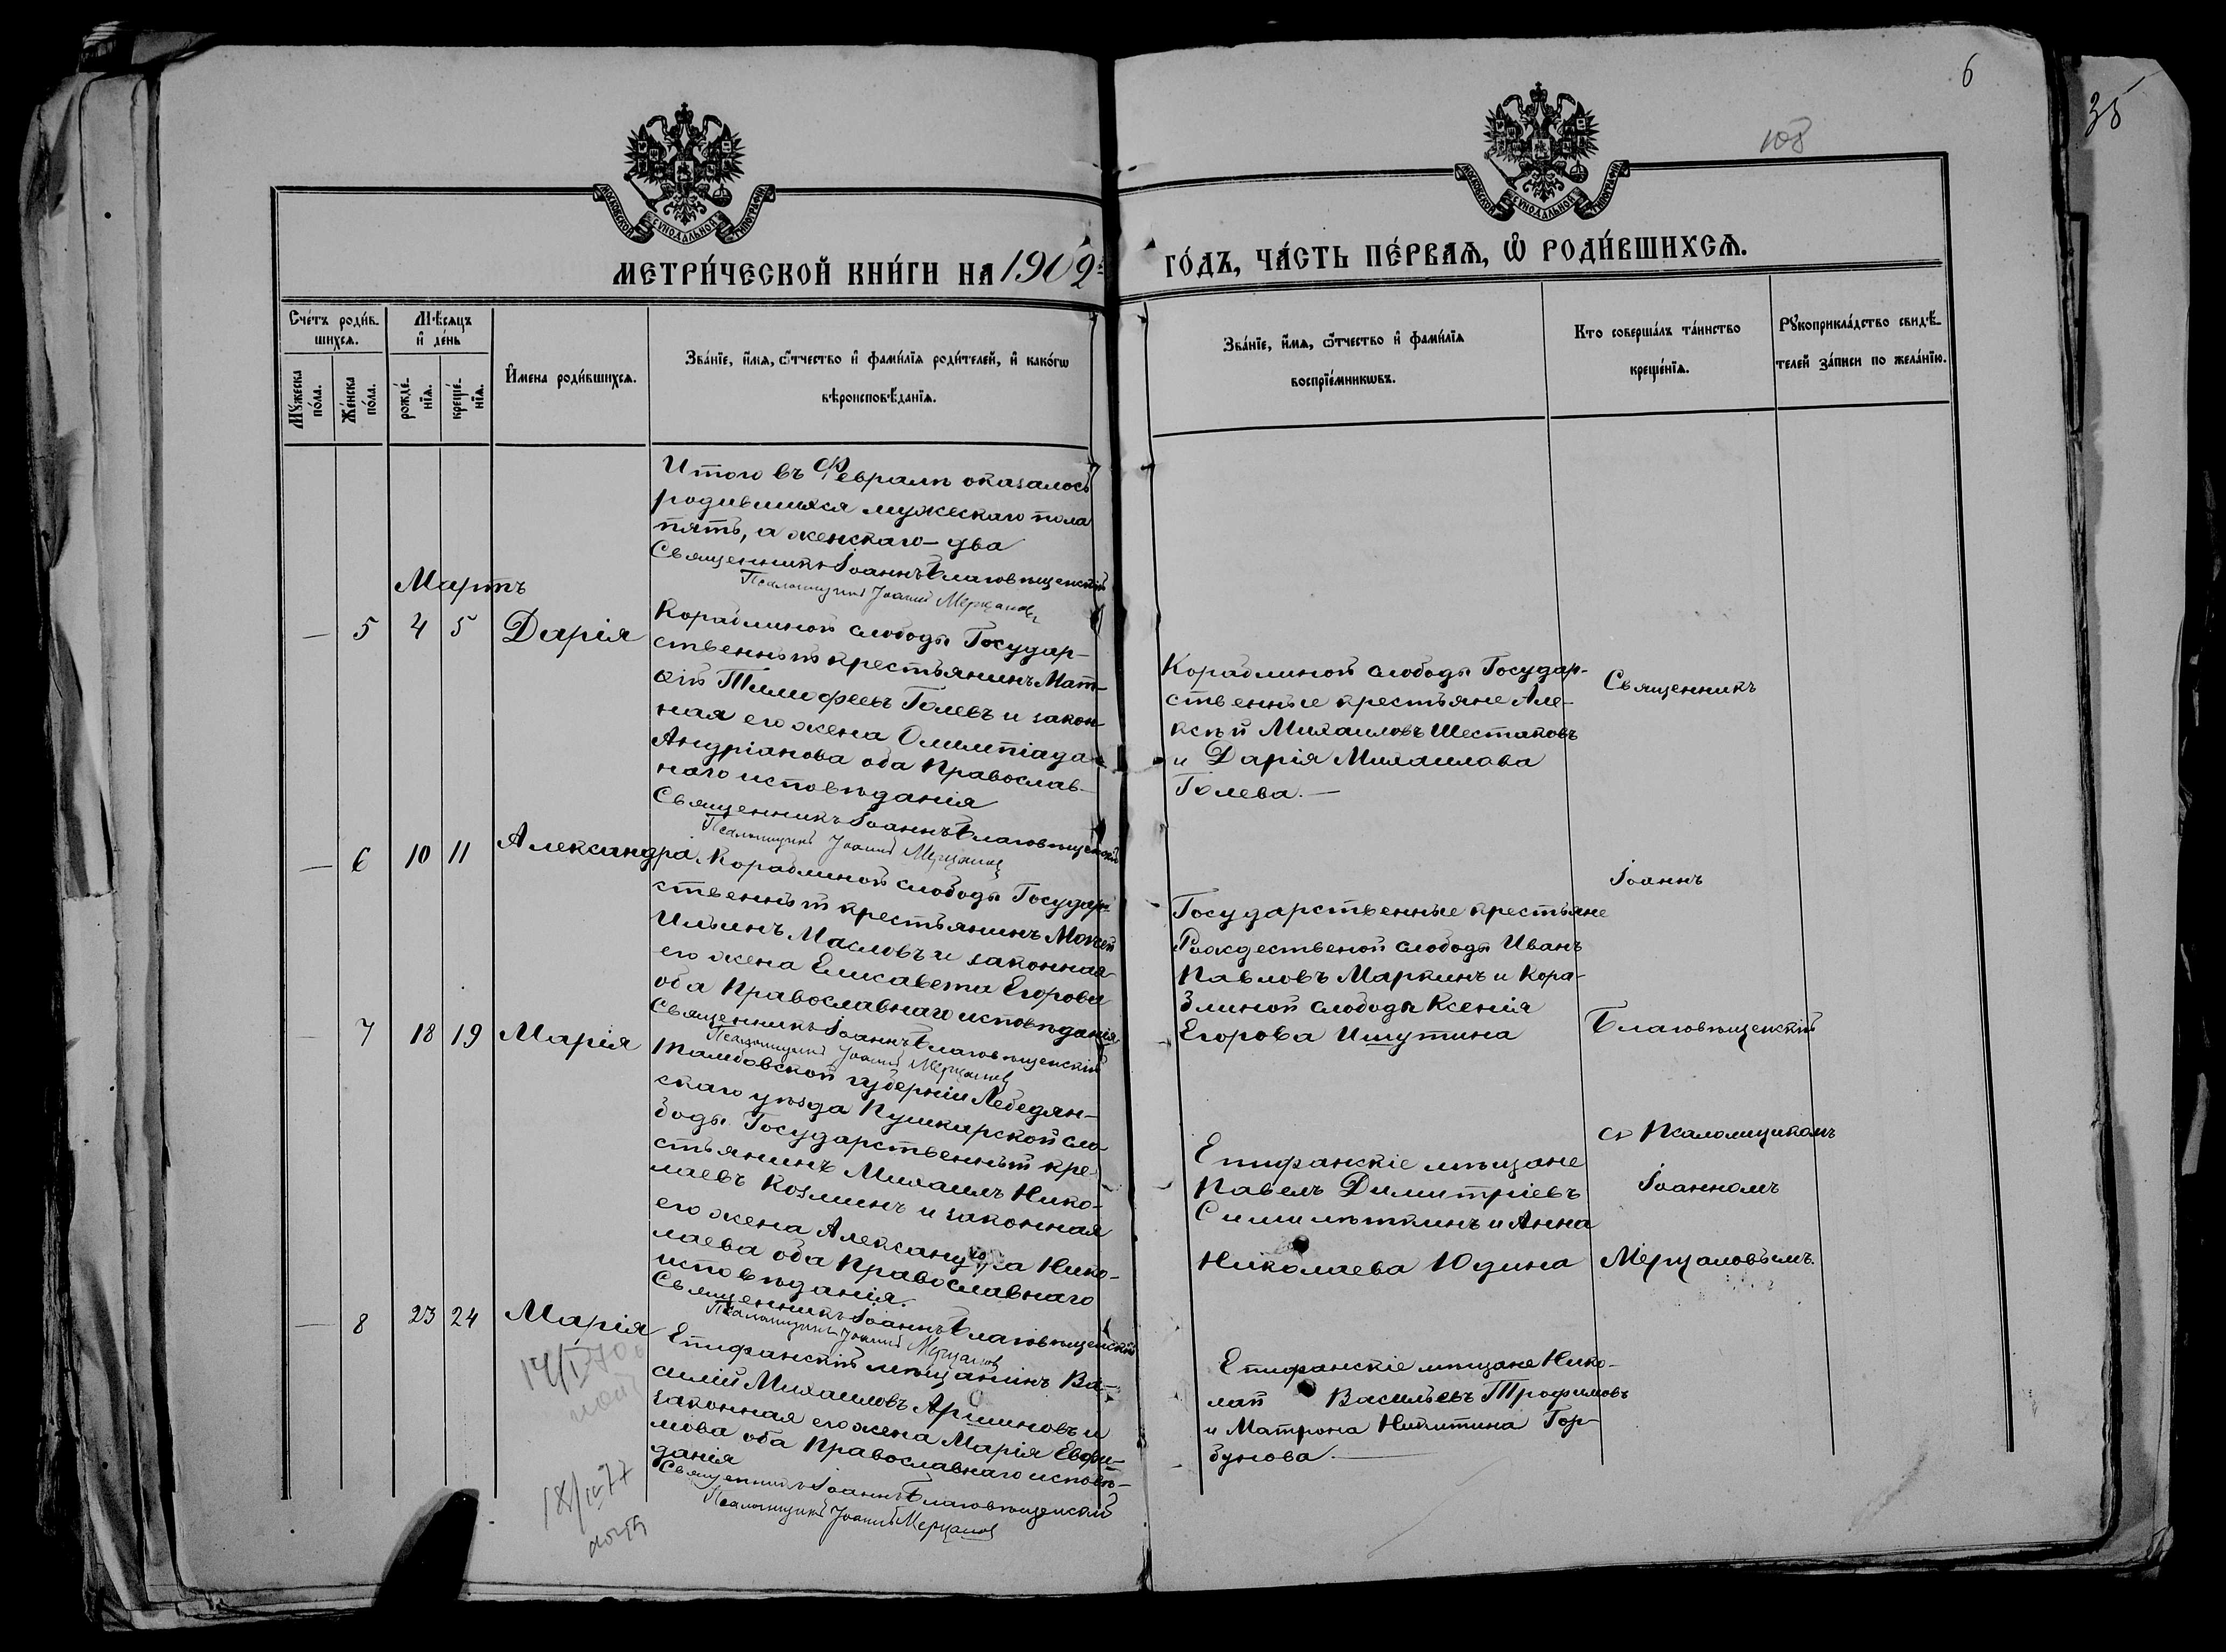 6
35
108
МОСКОВСКОЙ СѴНОДАЛЬНОЙ ТИПОГРАФІИ
МОСКОВСКОЙ СѴНОДАЛЬНОЙ ТИПОГРАФІИ
МЕТРИ́ЧЕСКОЙ КНИ́ГИ НА 1902й
ГО́ДЪ, ЧА́СТЬ ПЕ́РВАѦ, Ѡ РОДИ́ВШИХСѦ.
Сче́тъ роди́в-
шихсѧ.
Мѣ́сѧцъ
и҆ де́нь
Мꙋ́жеска
по́ла.
Же́нска
по́ла.
рожде́-
нїѧ.
креще́-
нїѧ.
И҆мена роди́вшихсѧ.
Зва́нїе, и҆́мѧ, ѻ҆́тчество и҆ фами́лїѧ роди́телей, и҆ како́гѡ
вѣроисповѣ́данїѧ.
Зва́нїе, и҆́мѧ, ѻ҆́тчество и҆ фами́лїѧ
воспрїе́мникѡвъ.
Кто соверша́лъ та́инство
креще́нїѧ.
Рꙋкоприкла́дство свидѣ́-
телей за́писи по жела́нїю.
Итого въ Февралѣ оказалось
родившихся мужескаго пола
пять, а женскаго – два
Священникъ Іоаннъ Благовѣщенскій
Псаломщикъ Іоаннъ Мерцаловъ
Мартъ
— 5 4 5 Дарія
Кораблиной слободы Государ-
ственный крестьянинъ Мат-
ѳій Тимофеевъ Голевъ и закон-
ная его жена Олимпіада
Андріанова оба Православ-
наго исповѣданія
Священникъ Іоаннъ Благовѣщенскій
Псаломщикъ Іоаннъ Мерцаловъ
Кораблиной слободы Государ-
ственные крестьяне Але-
ксѣй Михаиловъ Шестаковъ
и Дарія Михаилова
Голева. —
Священникъ
— 6 10 11 Александра
Кораблиной слободы Государ-
ственный крестьянинъ Моѵсей
Ильинъ Масловъ и законная
его жена Елисавета Егорова
оба Православнаго исповѣданія
Священникъ Іоаннъ Благовѣщенскій
Псаломщикъ Іоаннъ Мерцаловъ
Іоаннъ
Государственные крестьяне
Рождественой слободы Иванъ
Павловъ Маркинъ и Кора-
блиной слободы Ксенія
Егорова Ишутина
Благовѣщенскій
— 7 18 19 Марія
Тамбовской губерніи Лебедян-
скаго уѣзда Пушкарской сло-
боды Государственный кре-
стьянинъ Михаилъ Нико-
лаевъ Козминъ и законная
его жена Александра Нико-
лаева оба Православнаго
исповѣданія.
Священникъ Іоаннъ Благовѣщенскій
Псаломщикъ Іоаннъ Мерцаловъ
Епифанскіе мѣщане
Павелъ Димитріевъ
Симилѣткинъ и Анна
Николаева Юдина
съ Псаломщикомъ
Іоанномъ
Мерцаловымъ.
— 8 23 24 Марія
Епифанскій мѣщанинъ Ва-
силій Михаиловъ Аршиновъ и
законная его жена Марія Евфи-
мова оба Православнаго исповѣ-
данія
Священникъ Іоаннъ Благовѣщенскій
Псаломщикъ Іоаннъ Мерцаловъ
Епифанскіе мѣщане Нико-
лай Васильевъ Трофимовъ
и Матрона Никитина Гор-
бунова. —